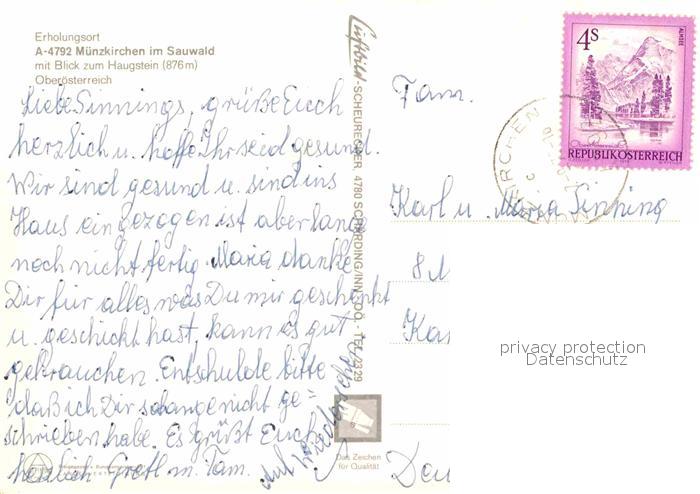 Erholungsort
A-4792 Münzkirchen im Sauwald
mit Blick zum Haugstein (876 m)
Oberösterreich
Liebe Sinnings, grüße Euch
herzlich u. hoffe Ihr seid gesund.
Wir sind gesund u. sind ins
Haus eingezogen ist aber lange
noch nicht fertig. Maria danke
Dir für alles was Du mir geschenkt
u. geschickt hast, kann es gut
gebrauchen. Entschulde bitte
daß ich Dir solange nicht ge=
schrieben habe. Es grüßt Euch
herzlich Gretl m. Fam.
auf Wiedersehen
Luftbild-SCHEURECKER, 4780 SCHÄRDING/INN, OÖ. - TEL. 3329
Das Zeichen
für Qualität
4S
ALMSEE
Oberösterreich
REPUBLIK ÖSTERREICH
Fam.
Karl u. Maria Sinning
8 M
Ka
privacy protection
Datenschutz